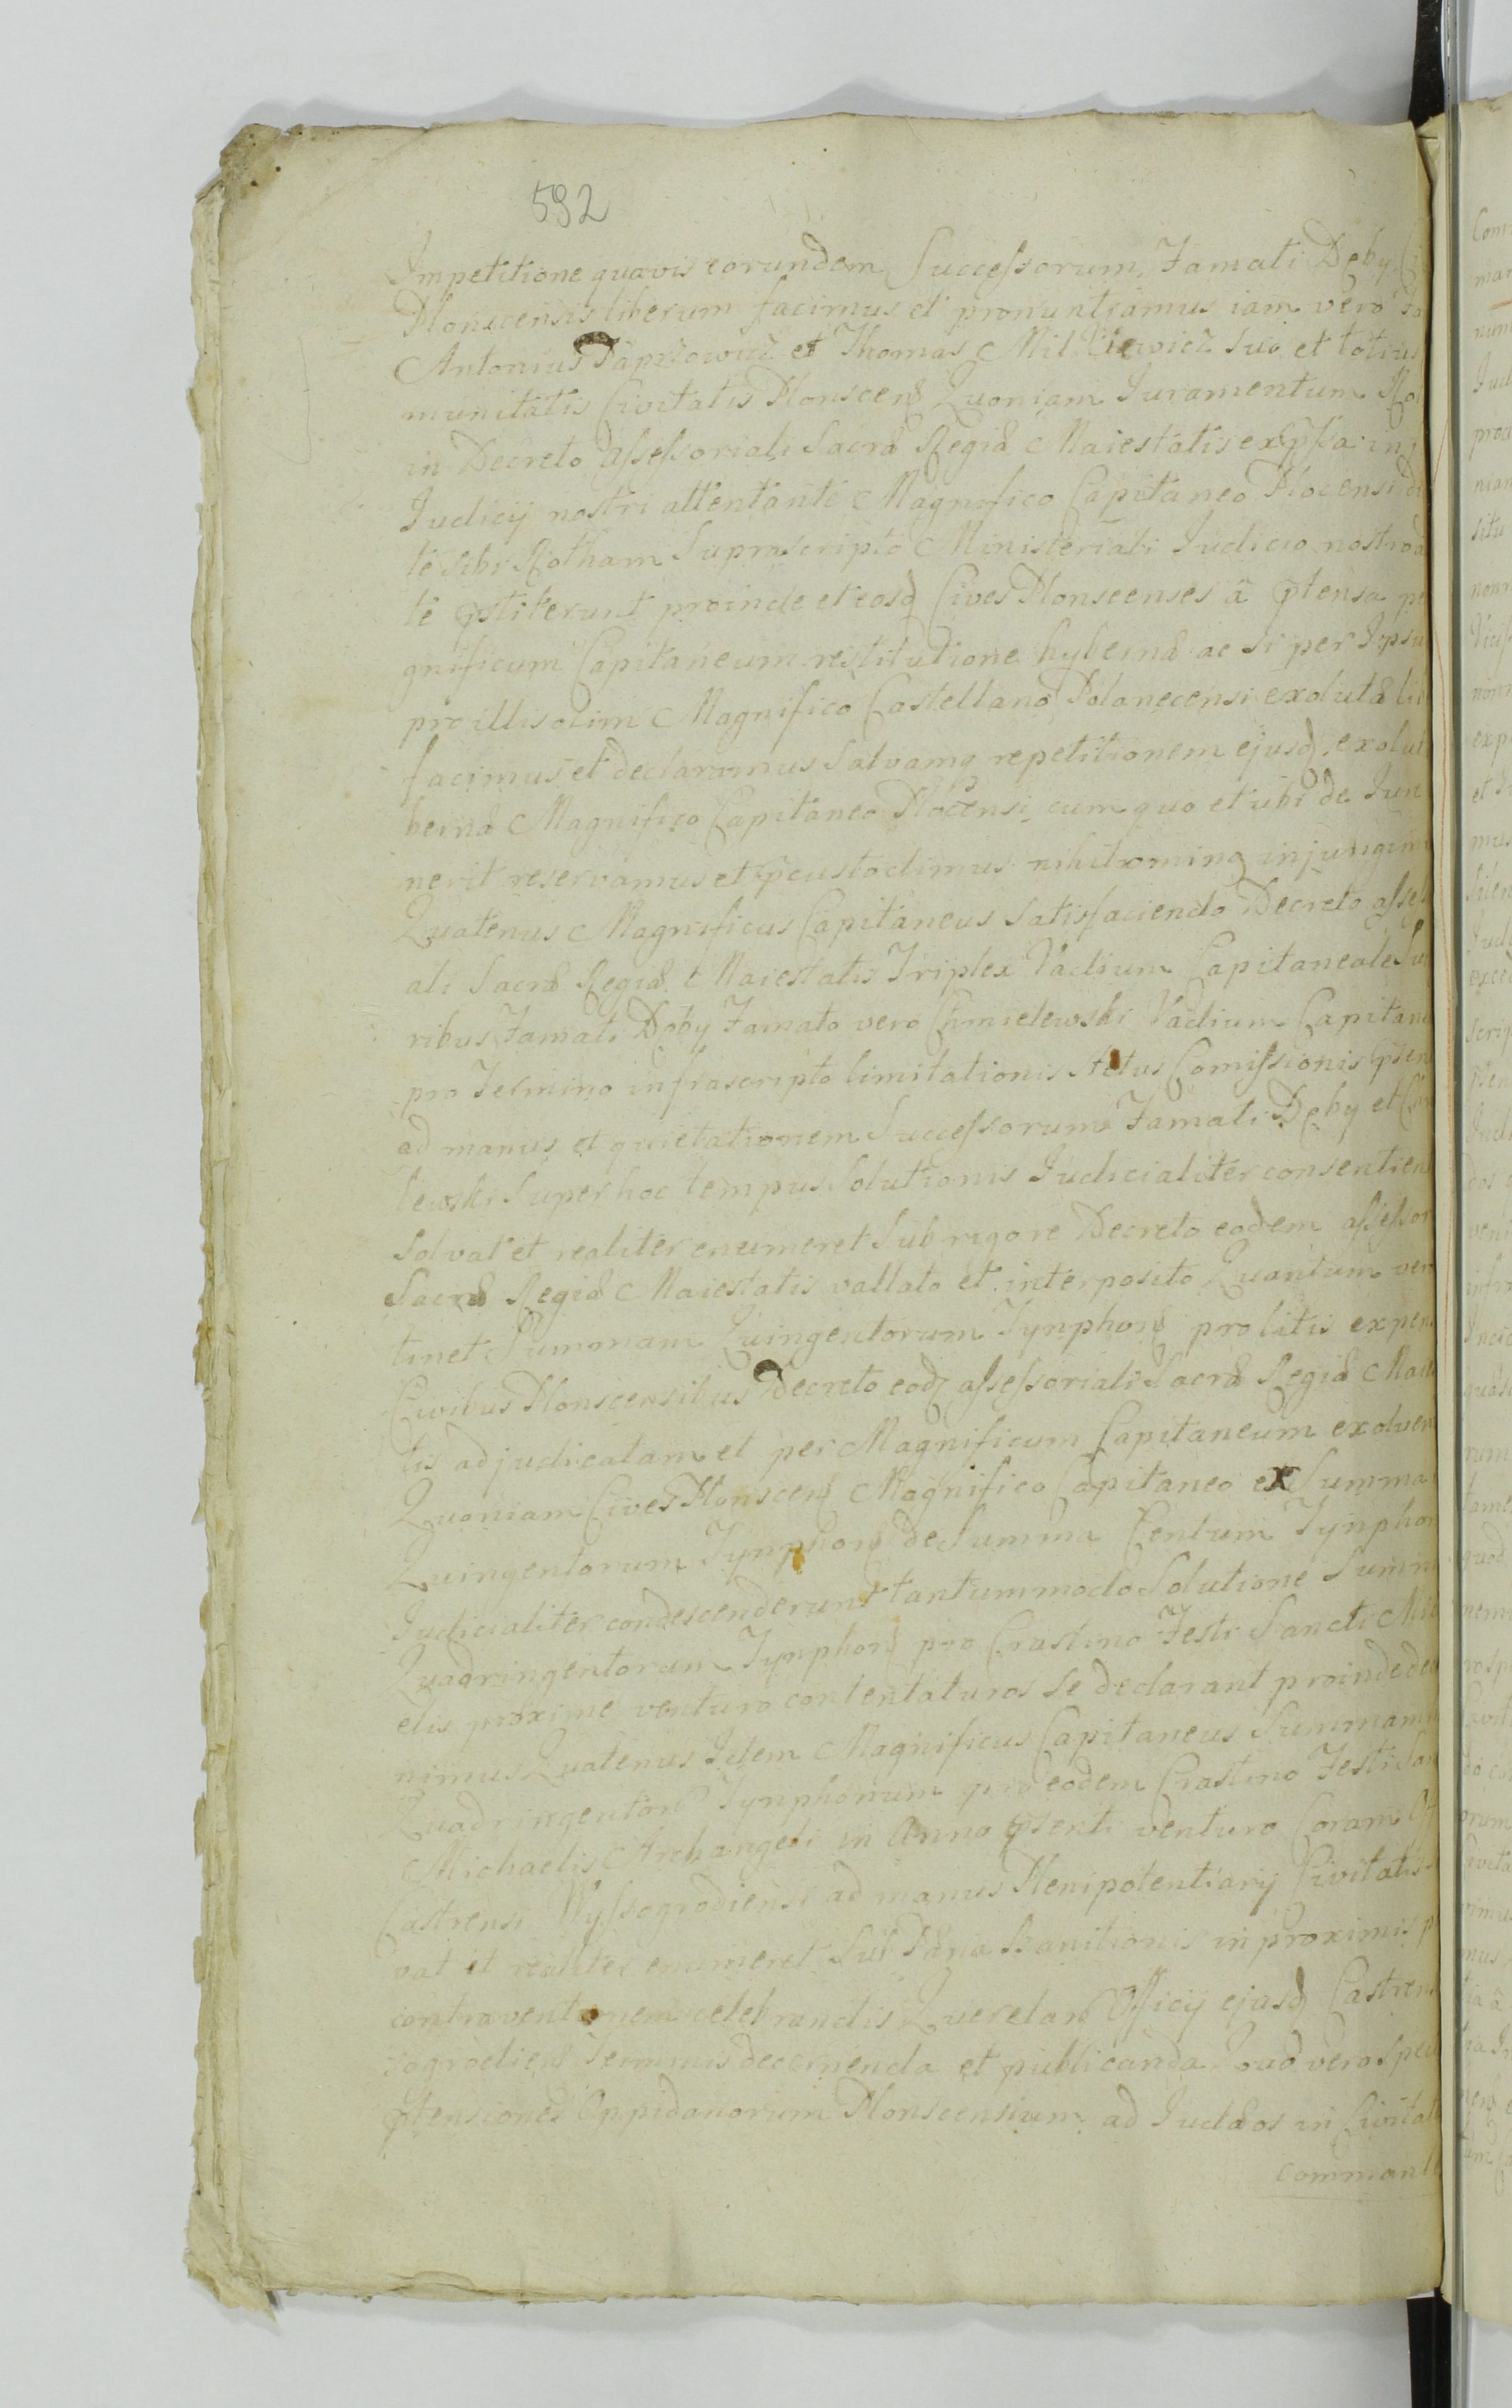 592
Impetitione quavis eorundem Successorum Famati Deby
Plonscensis liberum facimus et pronuntiamus iam vero
Antonius Paprzowicz et Thomas Milkiewicz suo et totius
munitatis Civitatis Plonscens Quoniam Juramentum
in Decreto assessoriali Sacræ Regiæ Maiestatis expssa in
Judicij nostri attentante Magnifico Capitaneo Plocensi
te sibi Rotham suprascripto Ministeriali Judicio nostro
te pstiterunt proinde et eosq Cives Plonscenses â ptensa
gnificum Capitaneum restitutione hybernæ ac si per Ipsu
pro illis olim Magnifico Castellano Polanecensi exolutæ li
facimus et declaramus salvamq repetitionem ejusq exolut
bernæ Magnifico Capitaneo Plocensi, cum quo et ubi de Jure
nerit reservamus et pcustodimus nihilominq injungim
Quatenus Magnificus Capitaneus satisfaciendo Decreto asse
ali Sacræ Regiæ Maiestatis Triplex Vadium Capitaneale Su
ribus Famati Deby Famato vero Chmielewski Vadium Capitane
pro Termino infrascripto limitationis Actus Comissionis psen
ad manus et quietationem Successorum Famati Deby et
lewski super hoc tempus solutionis Judicialiter consentien
solvat et realiter enumeret sub rigore Decreto eodem assessor
Sacræ Regiæ Maiestatis vallato et interposito Quantum ver
tinet Summam Quingentorum Tynphonũ pro litis expen
Civibus Plonscensibus Decreto eodq assessoriali Sacræ Regiæ Maie
tis adjudicatam et per Magnificum Capitaneum exolven
Quoniam Cives Plonscens Magnifico Capitaneo ex Summa
Quingentorum Tynphonũ de Summa Centum Tynphon
Judicialiter condescenderunt tantummodo Solutione Summ
Quadringentorum Tynphonũ pro Crastino Festi Sancti Mi
elis proxime venturo contentaturos se declarant proinde
nimus Quatenus Idem Magnificus Capitaneus Summam
Quadringentorũ Tynphonum pro eodem Crastino Festi San
Michaelis Archangeli in Anno psenti venturo Coram
Castrensi Wyssogrodiensi ad manus Plenipotentiarij Civitatis
vat et realiter enumeret sub Pæna Banitionis in proximis
contraventionem celebrandis Querelarũ Officij ejusq Castren
sogrodiens Terminis decernenda et publicanda Quo vero spe
ptensiones Oppidanorum Plonscensium ad Judæos in Civitat
commant